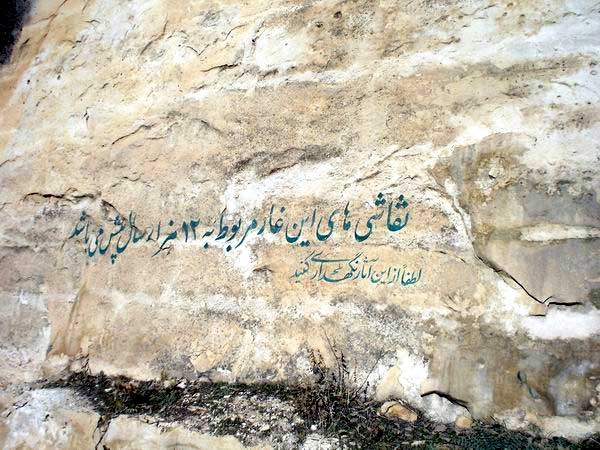 نقاشی های این غار مربوط به ۱۲ هزار سال پیش می باشد
لطفا از این آثار نگهداری کنید